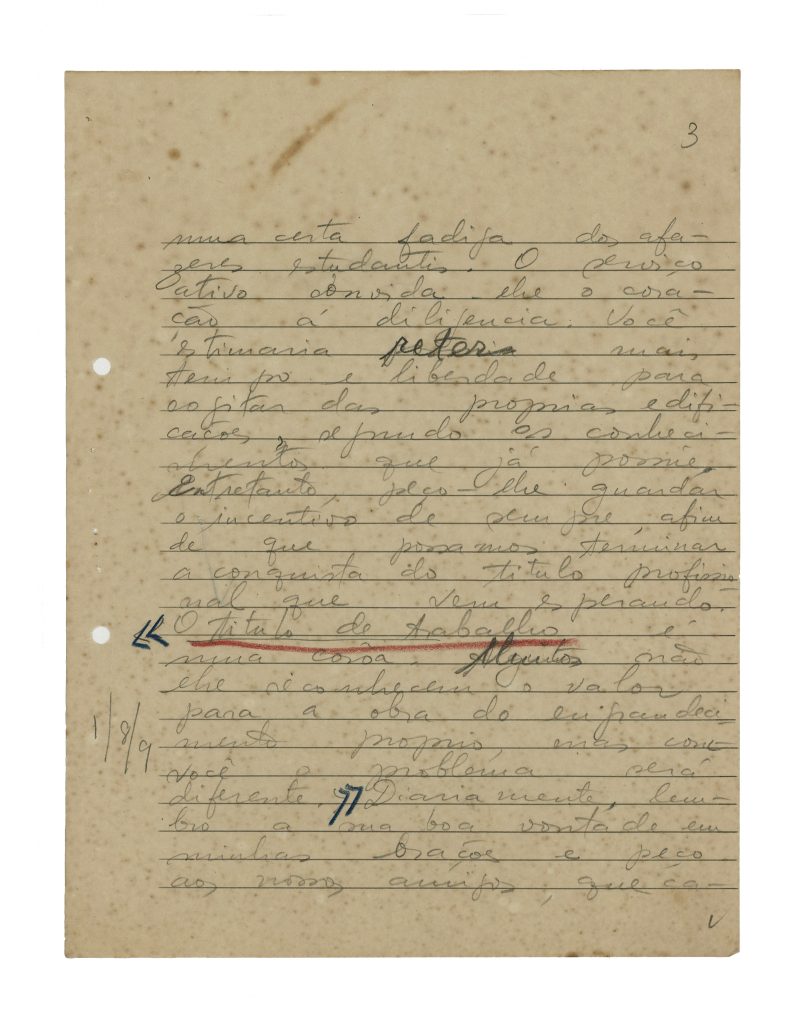 3
numa certa fadiga dos afa-
zeres estudantis. O serviço
ativo convida-lhe o cora-
ção á diligencia. Você
estimaria reter mais
tempo e liberdade para
cogitar das proprias edifi-
cações, segundo os conheci-
mentos que já possúe.
Entretanto, peço-lhe guardar
o incentivo de sempre, afim
de que possamos terminar
a conquista do titulo profissio
nal que vem esperando.
« O titulo de trabalho é
uma corôa. Muitos não
lhe reconhecem o valor
para a obra do engrandeci-
mento proprio, mas com
você o problema será
diferente. » Diariamente, lem-
bro a sua boa vontade em
minhas orações e peço
aos nossos amigos, que a-
1/8/9